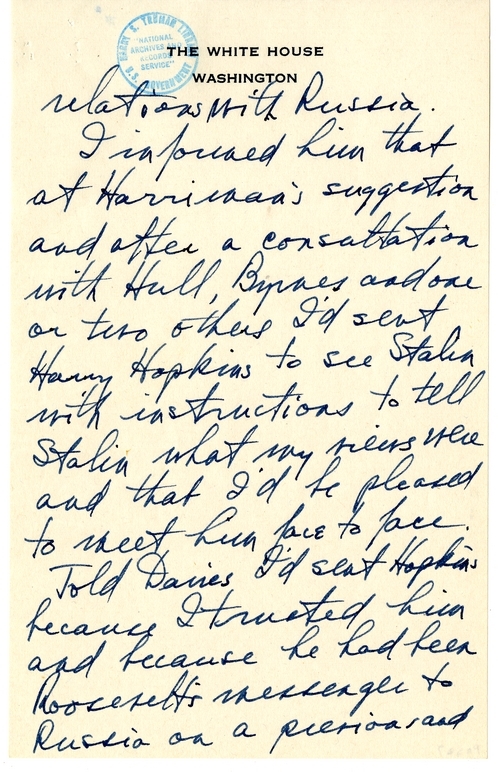 HARRY S. TRUMAN LIBRARY
"NATIONAL
ARCHIVES AND
RECORDS
SERVICE"
U.S. GOVERNMENT
THE WHITE HOUSE
WASHINGTON
relations with Russia.
I informed him that
at Harriman's suggestion
and after a consultation
with Hull, Byrnes and one
or two others I'd sent
Harry Hopkins to see Stalin
with instructions to tell
Stalin what my views were
and that I'd be pleased
to meet him face to face.
Told Davies I'd sent Hopkins
because I trusted him
and because he had been
Roosevelt's messenger to
Russia on a previous and